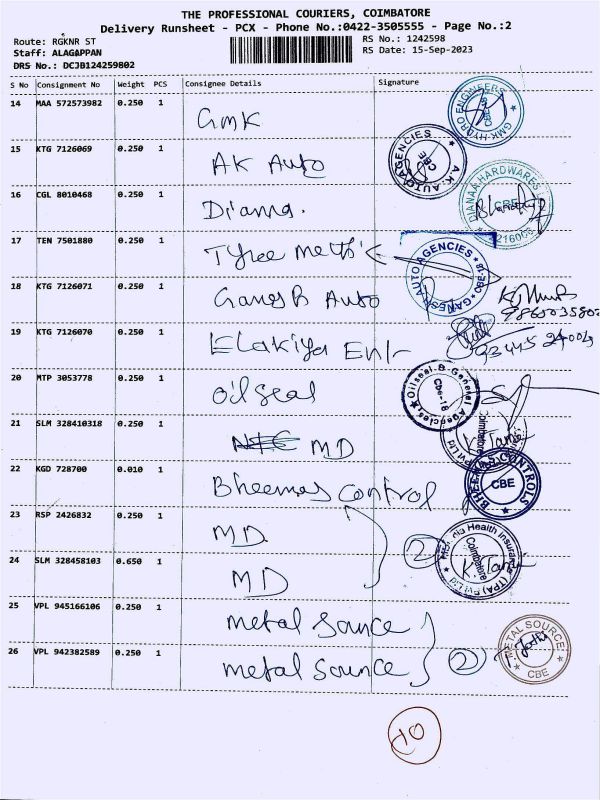 THE PROFESSIONAL COURIERS, COIMBATORE
Delivery Runsheet - PCX - Phone No.:0422-3505555 - Page No.:2
Route: RGKNR ST
RS No.: 1242598
Staff: ALAGAPPAN
RS Date: 15-Sep-2023
DRS No.: DCJB124259802
S No Consignment No Weight PCS Consignee Details Signature
14 MAA 572573982 0.250 1 GMK
GMK HYDRO ENGINEERS
15 KTG 7126069 0.250 1 AK Auto
A.K. AUTO AGENCIES CBE
16 CGL 8010468 0.250 1 Dianna.
DIANAA HARDWARES CBE
17 TEN 7501880 0.250 1
18 KTG 7126071 0.250 1 Ganesh Auto
GANESH AUTO AGENCIES CBE-18
19 KTG 7126070 0.250 1 Elakiya Ent
20 MTP 3053778 0.250 1 oil seal
Oilseal & General Agencies Cbe-18
21 SLM 328410318 0.250 1 MD
Coimbatore
(TPA) Pvt Ltd
22 KGD 728700 0.010 1 Bheemas Control
BHEEMAS CONTROLS CBE
23 RSP 2426832 0.250 1 MD
24 SLM 328458103 0.650 1 MD
2
Health Insurance (TPA) Pvt Ltd Coimbatore
25 VPL 945166106 0.250 1 metal Source
26 VPL 942382589 0.250 1 metal Source
2
METAL SOURCE CBE
10